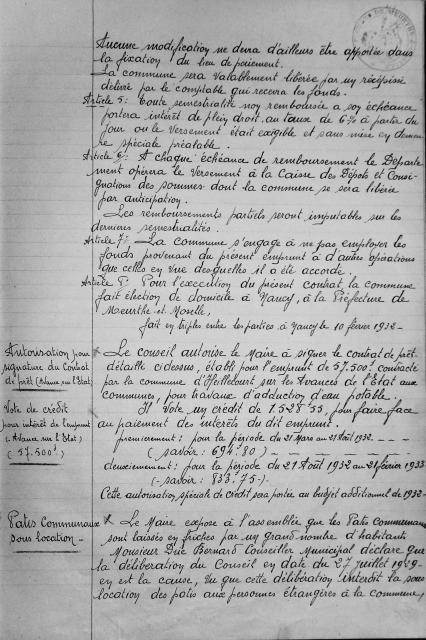 Aucune modification ne devra d'ailleurs être apportée dans
la fixation du lieu de paiement.
La commune sera valablement libérée par un récépissé
délivré par le comptable qui recevra les fonds.
Article 5: Toute semestralité non remboursée à son échéance
portera intérêt de plein droit au taux de 6% à partir du
jour où le versement était exigible et sans mise en demeu
re spéciale préalable.
Article 6: A chaque échéance de remboursement le Départe
ment opérera le versement à la Caisse des Dépôts et Consi-
gnations des sommes dont la commune se sera libérée
par anticipation.
Les remboursements partiels seront imputables sur les
dernières semestralités.
Article 7: La commune s'engage à ne pas employer les
fonds provenant du présent emprunt à d'autres opérations
que celles en vue desquelles il a été accordé.
Article 8: Pour l'exécution du présent contrat, la commune
fait élection de domicile à Nancy, à la Préfecture de
Meurthe-et-Moselle.
fait en triples entre les parties à Nancy le 10 février 1932-
Autorisation pour
signature du Contrat
de prêt (Avance sur l'Etat)
Le Conseil autorise le Maire à signer le contrat de prêt
détaillé ci dessus, établi pour l'emprunt de 57.500f contracté
par la commune d'Heillecourt sur les Avances de l'Etat aux
communes, pour travaux d'adduction d'eau potable.
Vote de crédit
pour intérêt de l'emprunt
(Avance sur l'Etat)
(57.500f)
Il vote un crédit de 1528f55, pour faire face
au paiement des intérêts du dit emprunt.
premièrement: pour la période du 21 Mars au 21 Août 1932.
(savoir: 694.80)
deuxièmement: pour la période du 21 Août 1932 au 21 février 1933
(savoir: 833.75)
Cette autorisation spéciale de crédit sera portée au budget additionnel de 1932-
Patis Communaux
sous location
Le Maire expose à l'assemblée que les Patis communaux
sont laissés en friches par un grand nombre d'habitants
Monsieur Bernard Conseiller Municipal déclare que
la délibération du Conseil en date du 27 juillet 1929
en est la cause, vu que cette délibération interdit la sous
location des patis aux personnes étrangères à la commune,